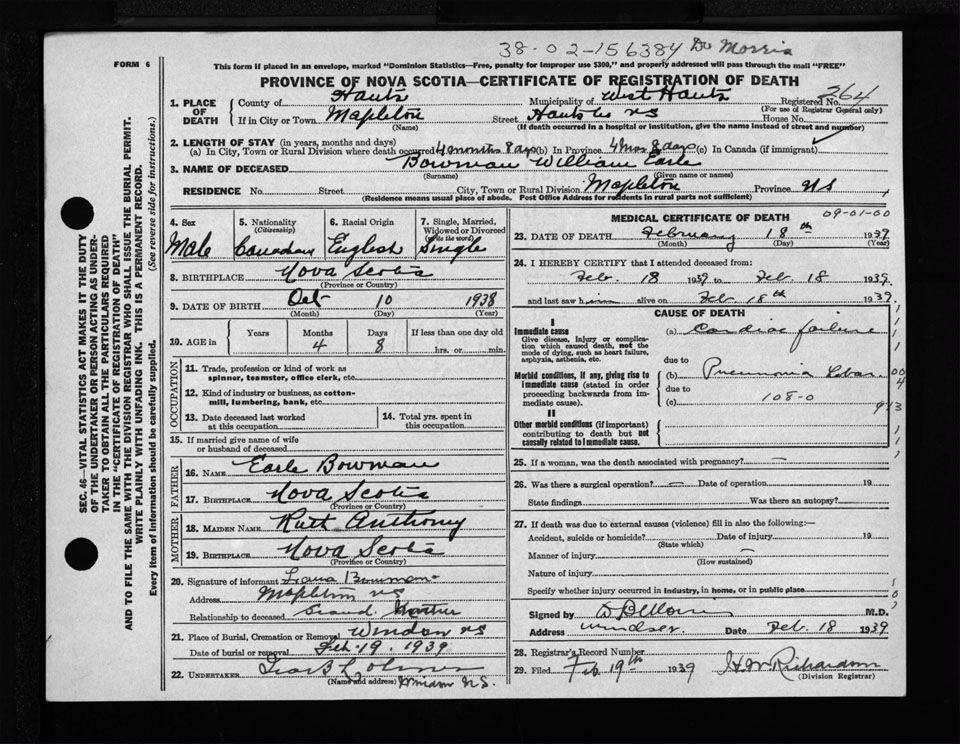 38-02-156384 Dr Morris
FORM 6
This form if placed in an envelope, marked "Dominion Statistics—Free, penalty for improper use $300," and properly addressed will pass through the mail "FREE"
PROVINCE OF NOVA SCOTIA—CERTIFICATE OF REGISTRATION OF DEATH
264
1. PLACE OF DEATH
County of Hants Municipality of West Hants Registered No.
(For use of Registrar General only)
If in City or Town Mapleton Street Hants Co NS House No.
(Name) (If death occurred in a hospital or institution, give the name instead of street and number)
2. LENGTH OF STAY (in years, months and days)
(a) In City, Town or Rural Division where death occurred 4 months 8 days (b) In Province 4 mos 8 days (c) In Canada (if immigrant)
3. NAME OF DECEASED Bowman William Earle
(Surname) (Given name or names)
RESIDENCE No. Street City, Town or Rural Division Mapleton Province NS
(Residence means usual place of abode. Post Office Address for residents in rural parts not sufficient)
SEC. 46—VITAL STATISTICS ACT MAKES IT THE DUTY
OF THE UNDERTAKER OR PERSON ACTING AS UNDER-
TAKER TO OBTAIN ALL THE PARTICULARS REQUIRED
IN THE "CERTIFICATE OF REGISTRATION OF DEATH"
AND TO FILE THE SAME WITH THE DIVISION REGISTRAR WHO SHALL ISSUE THE BURIAL PERMIT.
WRITE PLAINLY WITH UNFADING INK. THIS IS A PERMANENT RECORD.
Every item of Information should be carefully supplied. (See reverse side for instructions.)
4. Sex 5. Nationality 6. Racial Origin 7. Single, Married,
(Citizenship) Widowed or Divorced
(Write the word)
Male Canadian English Single
8. BIRTHPLACE Nova Scotia
(Province or Country)
9. DATE OF BIRTH Oct 10 1938
(Month) (Day) (Year)
10. AGE in
Years Months Days If less than one day old
4 8 hrs. or min.
OCCUPATION
11. Trade, profession or kind of work as
spinner, teamster, office clerk, etc.
12. Kind of industry or business, as cotton-
mill, lumbering, bank, etc.
13. Date deceased last worked
at this occupation
14. Total yrs. spent in
this occupation
15. If married give name of wife
or husband of deceased
FATHER
16. NAME Earle Bowman
17. BIRTHPLACE Nova Scotia
(Province or Country)
MOTHER
18. MAIDEN NAME Ruth Anthony
19. BIRTHPLACE Nova Scotia
(Province or Country)
20. Signature of informant Bowman
Address Mapleton NS
Relationship to deceased Grand Mother
21. Place of Burial, Cremation or Removal Windsor NS
Date of burial or removal Feb 19. 1939
22. UNDERTAKER
(Name and address) Windsor N.S.
MEDICAL CERTIFICATE OF DEATH
09-01-00
23. DATE OF DEATH February 18th 1939
(Month) (Day) (Year)
24. I HEREBY CERTIFY that I attended deceased from:
Feb 18 1939 to Feb. 18 1939.
and last saw him alive on Feb 18th 1939.
CAUSE OF DEATH
I
Immediate cause
Give disease, injury or complica-
tion which caused death, not the
mode of dying, such as heart failure,
asphyxia, asthenia, etc.
(a) Cardiac failure
due to
Morbid conditions, if any, giving rise to
immediate cause (stated in order
proceeding backwards from im-
mediate cause).
(b) Pneumonia Lobar
due to
(c) 108-0
II
Other morbid conditions (if important)
contributing to death but not
causally related to immediate cause.
25. If a woman, was the death associated with pregnancy?
26. Was there a surgical operation? Date of operation 19
State findings Was there an autopsy?
27. If death was due to external causes (violence) fill in also the following:—
Accident, suicide or homicide? Date of injury 19
(State which)
Manner of injury
(How sustained)
Nature of injury
Specify whether injury occurred in Industry, in home, or in public place
Signed by M.D.
Address Windsor. Date Feb. 18 1939
28. Registrar's Record Number
29. Filed Feb 19th 1939 H W Richardson
(Division Registrar)